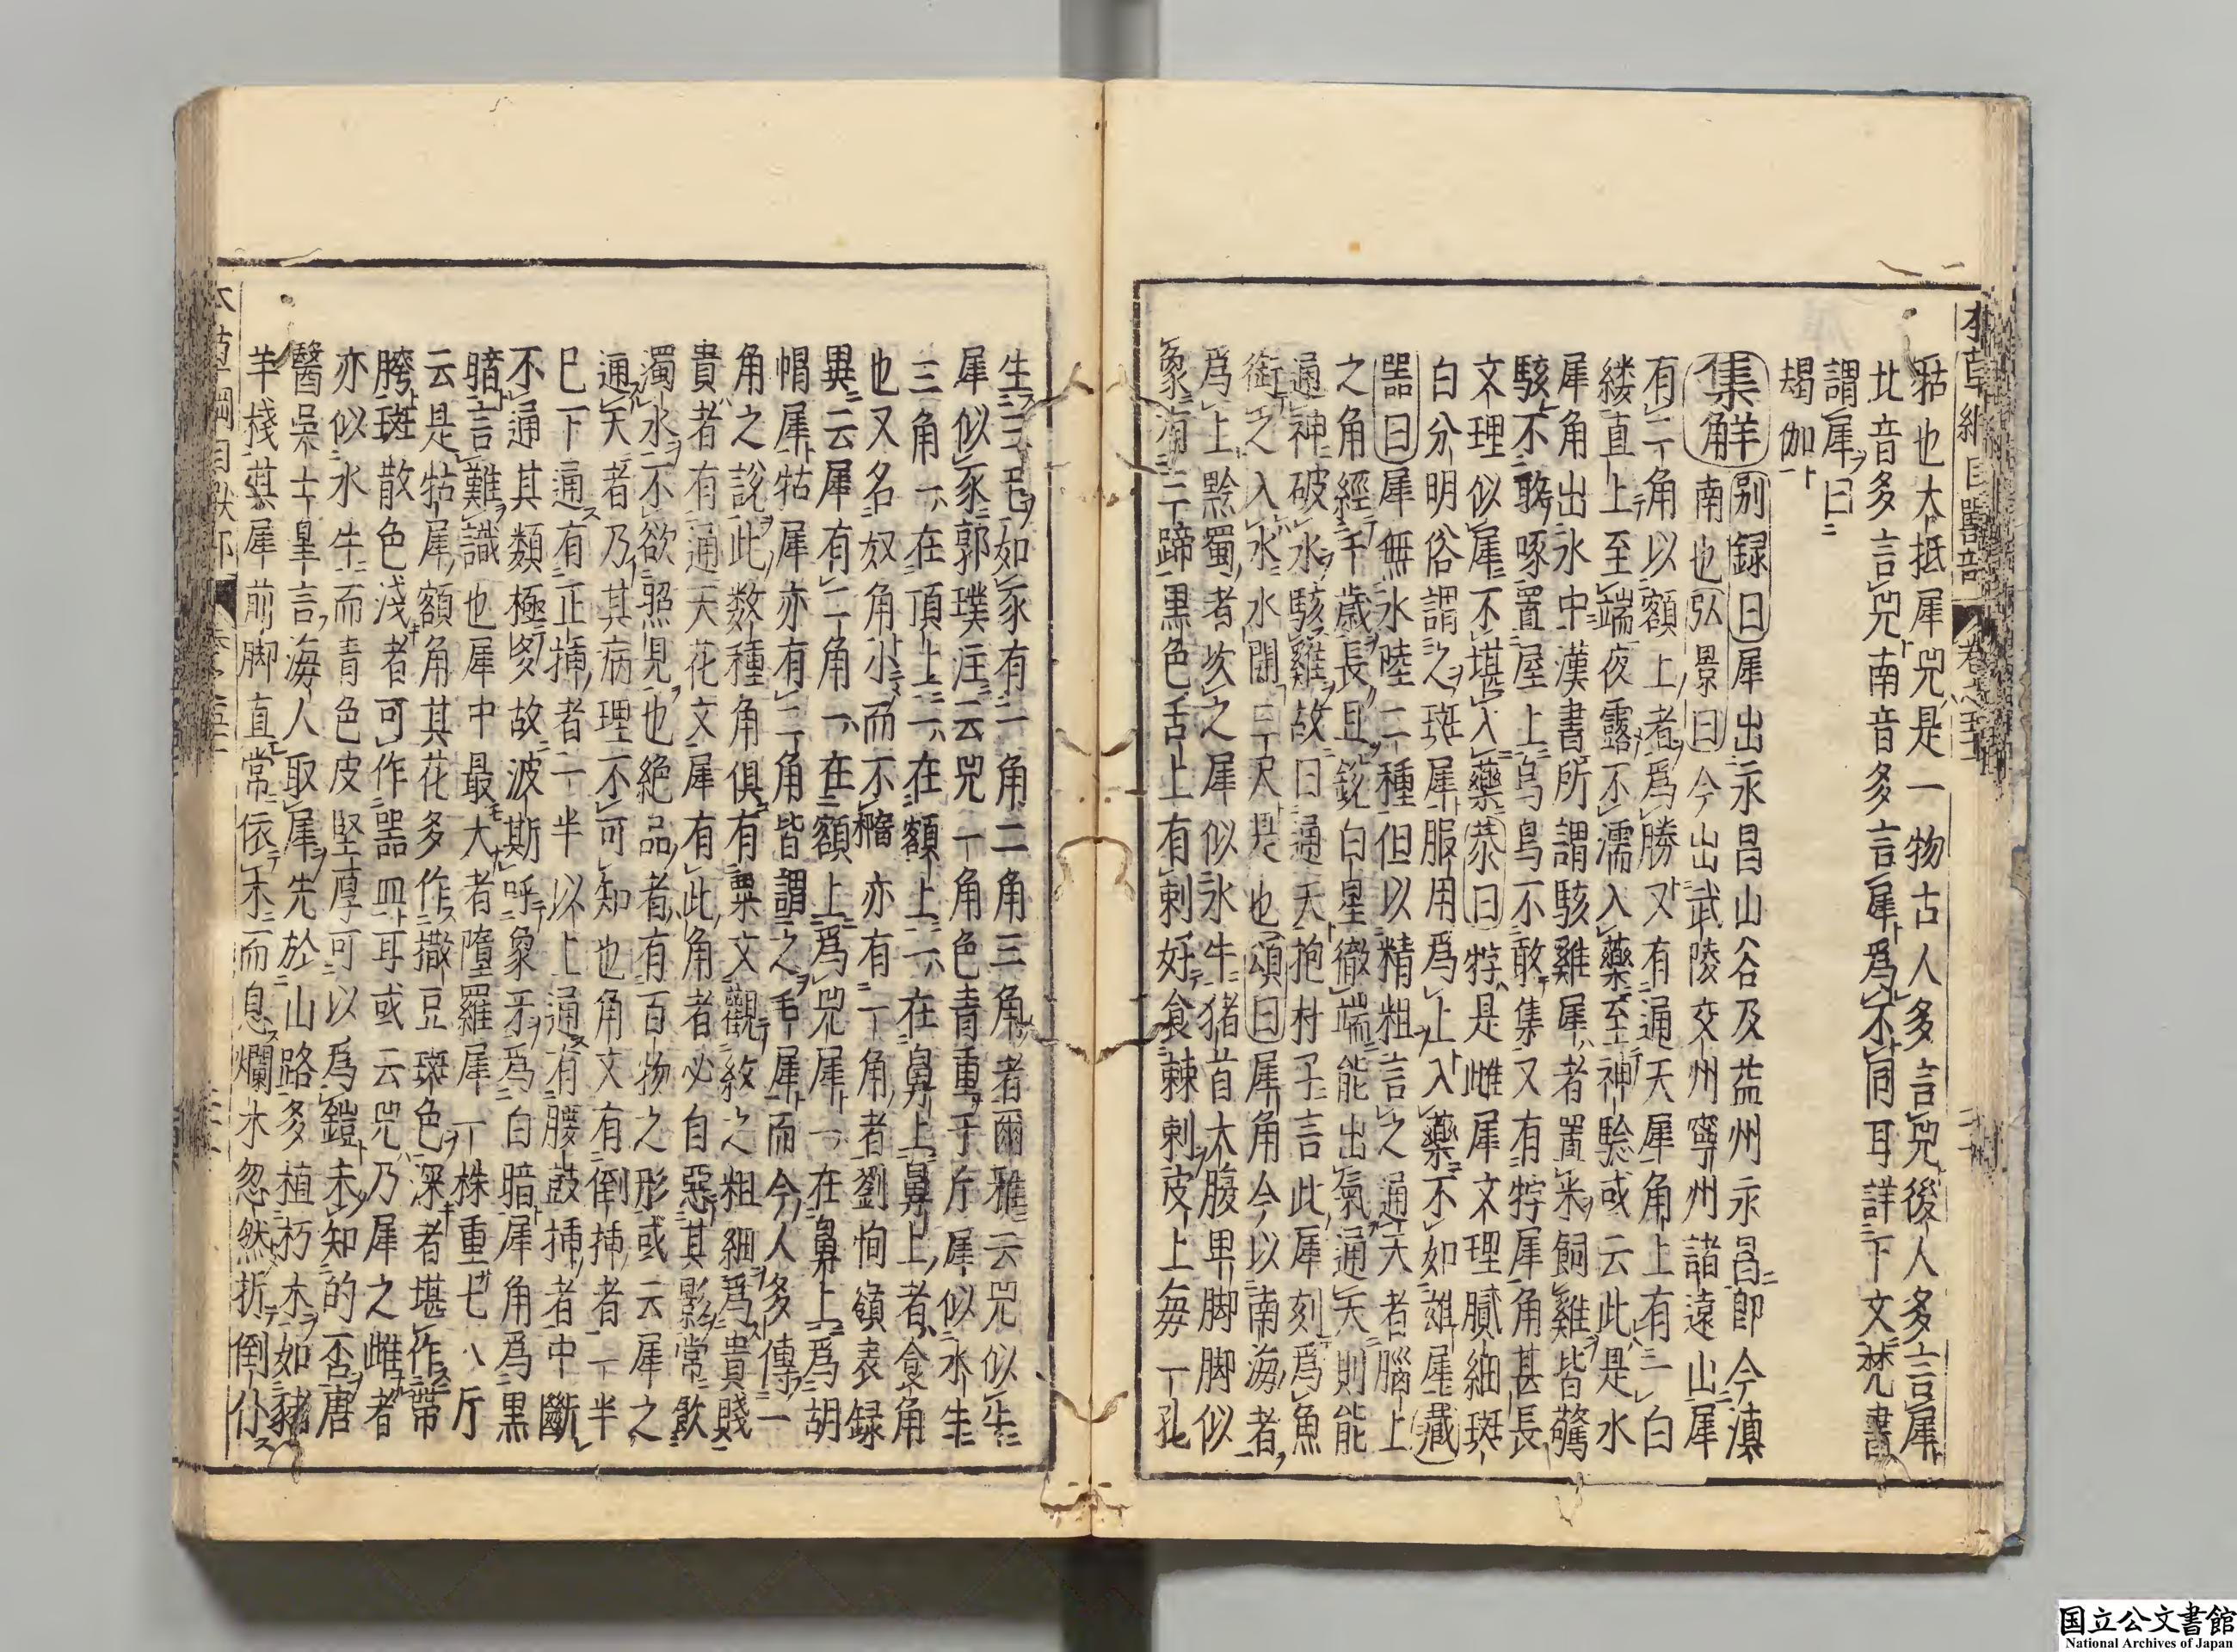 牯也大抵犀兕是一物古人多言兕後人多言犀
北音多言兕南音多言犀爲不同耳詳下文梵書
謂犀曰
朅伽
集觧別録曰犀出永昌山谷及益州永昌即今滇
南也弘景曰今出武陵交州寧州諸遠山犀
有二角以額上者爲勝又有通天犀角上有一白
縷直上至端夜露不濡入藥至神驗或云此是水
犀角出水中漢書所謂駭雞犀者置米飼雞皆驚
駭不敢啄置屋上烏鳥不敢集又有牸犀角甚長
文理似犀不堪入藥恭曰牸是雌犀文理膩細斑
白分明俗謂之斑犀服用爲上入藥不如雄犀藏
噐曰犀無水陸二種但以精粗言之通天者腦上
之角經千歲長且銳白星徹端能出氣通天則能
通神破水駭雞故曰通天抱朴子言此犀刻爲魚
銜之入水水開三尺是也頌曰犀角今以南海者
爲上黔蜀者次之犀似水牛猪首大腹卑脚脚似
象有三蹄黒色舌上有刺好食棘刺皮上每一孔
生三毛如豕有一角二角三角者爾雅云兕似牛
犀似豕郭璞注云兕一角色青重千斤犀似水牛
三角一在頂上一在額上一在鼻上鼻上者食角
也又名奴角小而不橢亦有一角者劉恂嶺表録
異云犀有二角一在額上爲兕犀一在鼻上爲胡
帽犀牯犀亦有二角皆謂之毛犀而今人多傳一
角之說此数種角俱有粟文觀紋之粗細爲貴賤
貴者有通天花文犀有此角者必自惡其影常飲
濁水不欲照見也絶品者有百物之形或云犀之
通天者乃其病理不可知也角文有倒挿者一半
巳下通有正挿者一半以上通有腰鼓挿者中斷
不通其類極多故波斯呼象牙爲白暗犀角爲黒
暗言難識也犀中最大者墮羅犀一株重七八斤
云是牯犀額角其花多作撒豆斑色深者堪作帶
胯斑散色淺者可作噐皿耳或云兕乃犀之雌者
亦似水牛而青色皮堅厚可以爲鎧未知的否唐
醫吳士臯言海人取犀先於山路多植朽木如猪
羊棧其犀前脚直常依木而息爛木忽然折倒仆
国立公文書館
National Archives of Japan